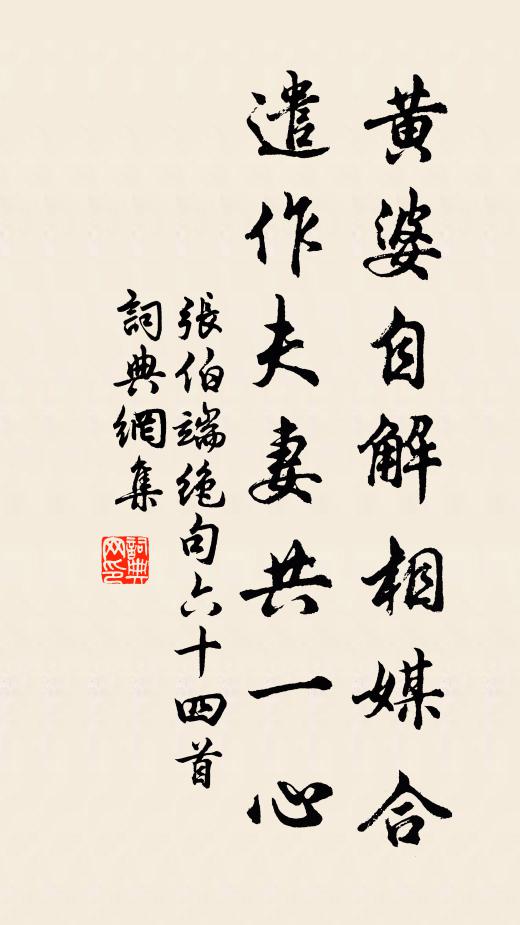 黄婆自解相媒合
遣作夫妻共一心
張伯端絶句六十四首
詞典網集
詞典
网印